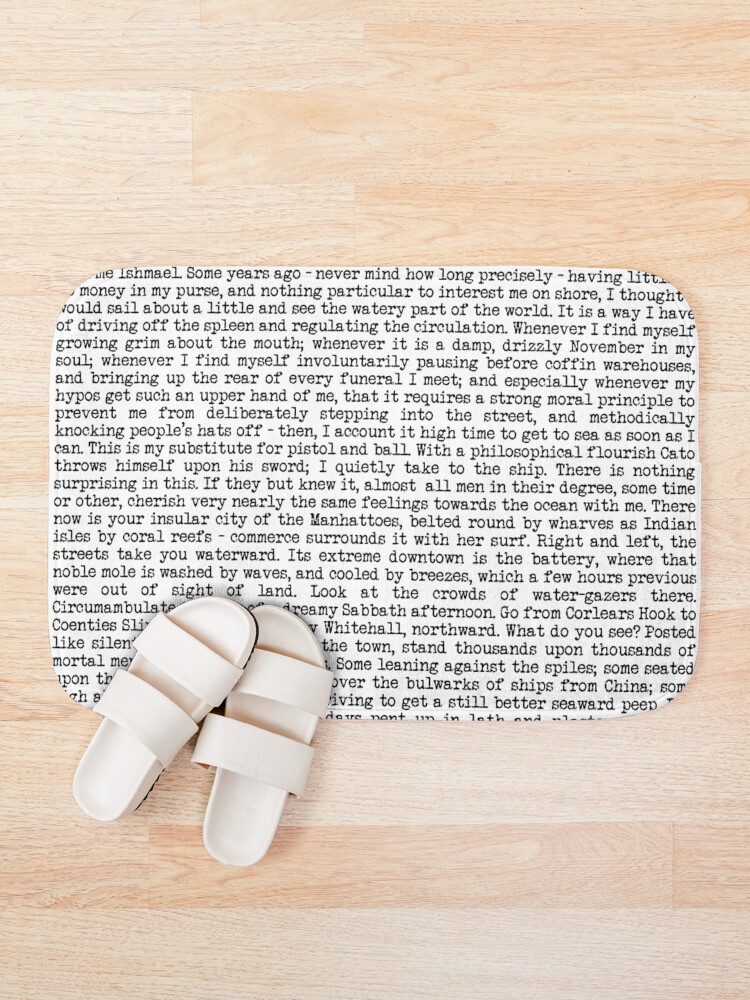 me Ishmael. Some years ago - never mind how long precisely - having
money in my purse, and nothing particular to interest me on shore, I thought
would sail about a little and see the watery part of the world. It is a way I have
of driving off the spleen and regulating the circulation. Whenever I find myself
growing grim about the mouth; whenever it is a damp, drizzly November in my
soul; whenever I find myself involuntarily pausing before coffin warehouses,
and bringing up the rear of every funeral I meet; and especially whenever my
hypos get such an upper hand of me, that it requires a strong moral principle to
prevent me from deliberately stepping into the street, and methodically
knocking people's hats off - then, I account it high time to get to sea as soon as I
can. This is my substitute for pistol and ball. With a philosophical flourish Cato
throws himself upon his sword; I quietly take to the ship. There is nothing
surprising in this. If they but knew it, almost all men in their degree, some time
or other, cherish very nearly the same feelings towards the ocean with me. There
now is your insular city of the Manhattoes, belted round by wharves as Indian
isles by coral reefs - commerce surrounds it with her surf. Right and left, the
streets take you waterward. Its extreme downtown is the battery, where that
noble mole is washed by waves, and cooled by breezes, which a few hours previous
were out of sight of land. Look at the crowds of water-gazers there.
Circumambulate dreamy Sabbath afternoon. Go from Corlears Hook to
Coenties Whitehall, northward. What do you see? Posted
like the town, stand thousands upon thousands of
mortal Some leaning against the spiles; some seated
upon over the bulwarks of ships from China;
to get a still better seaward peep.
days pent up in lath and